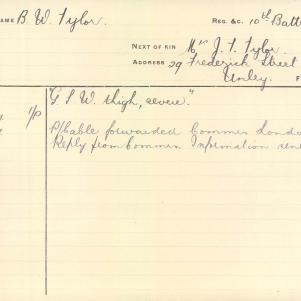 NAME B. W. Tylor REG. &C. 10th Batt
NEXT OF KIN Mr J. T. Tylor
ADDRESS 29 Frederick Street
Unley
"G S W. thigh, severe."
P/Cable forwarded Commee Londo
Reply from Commee Information sent